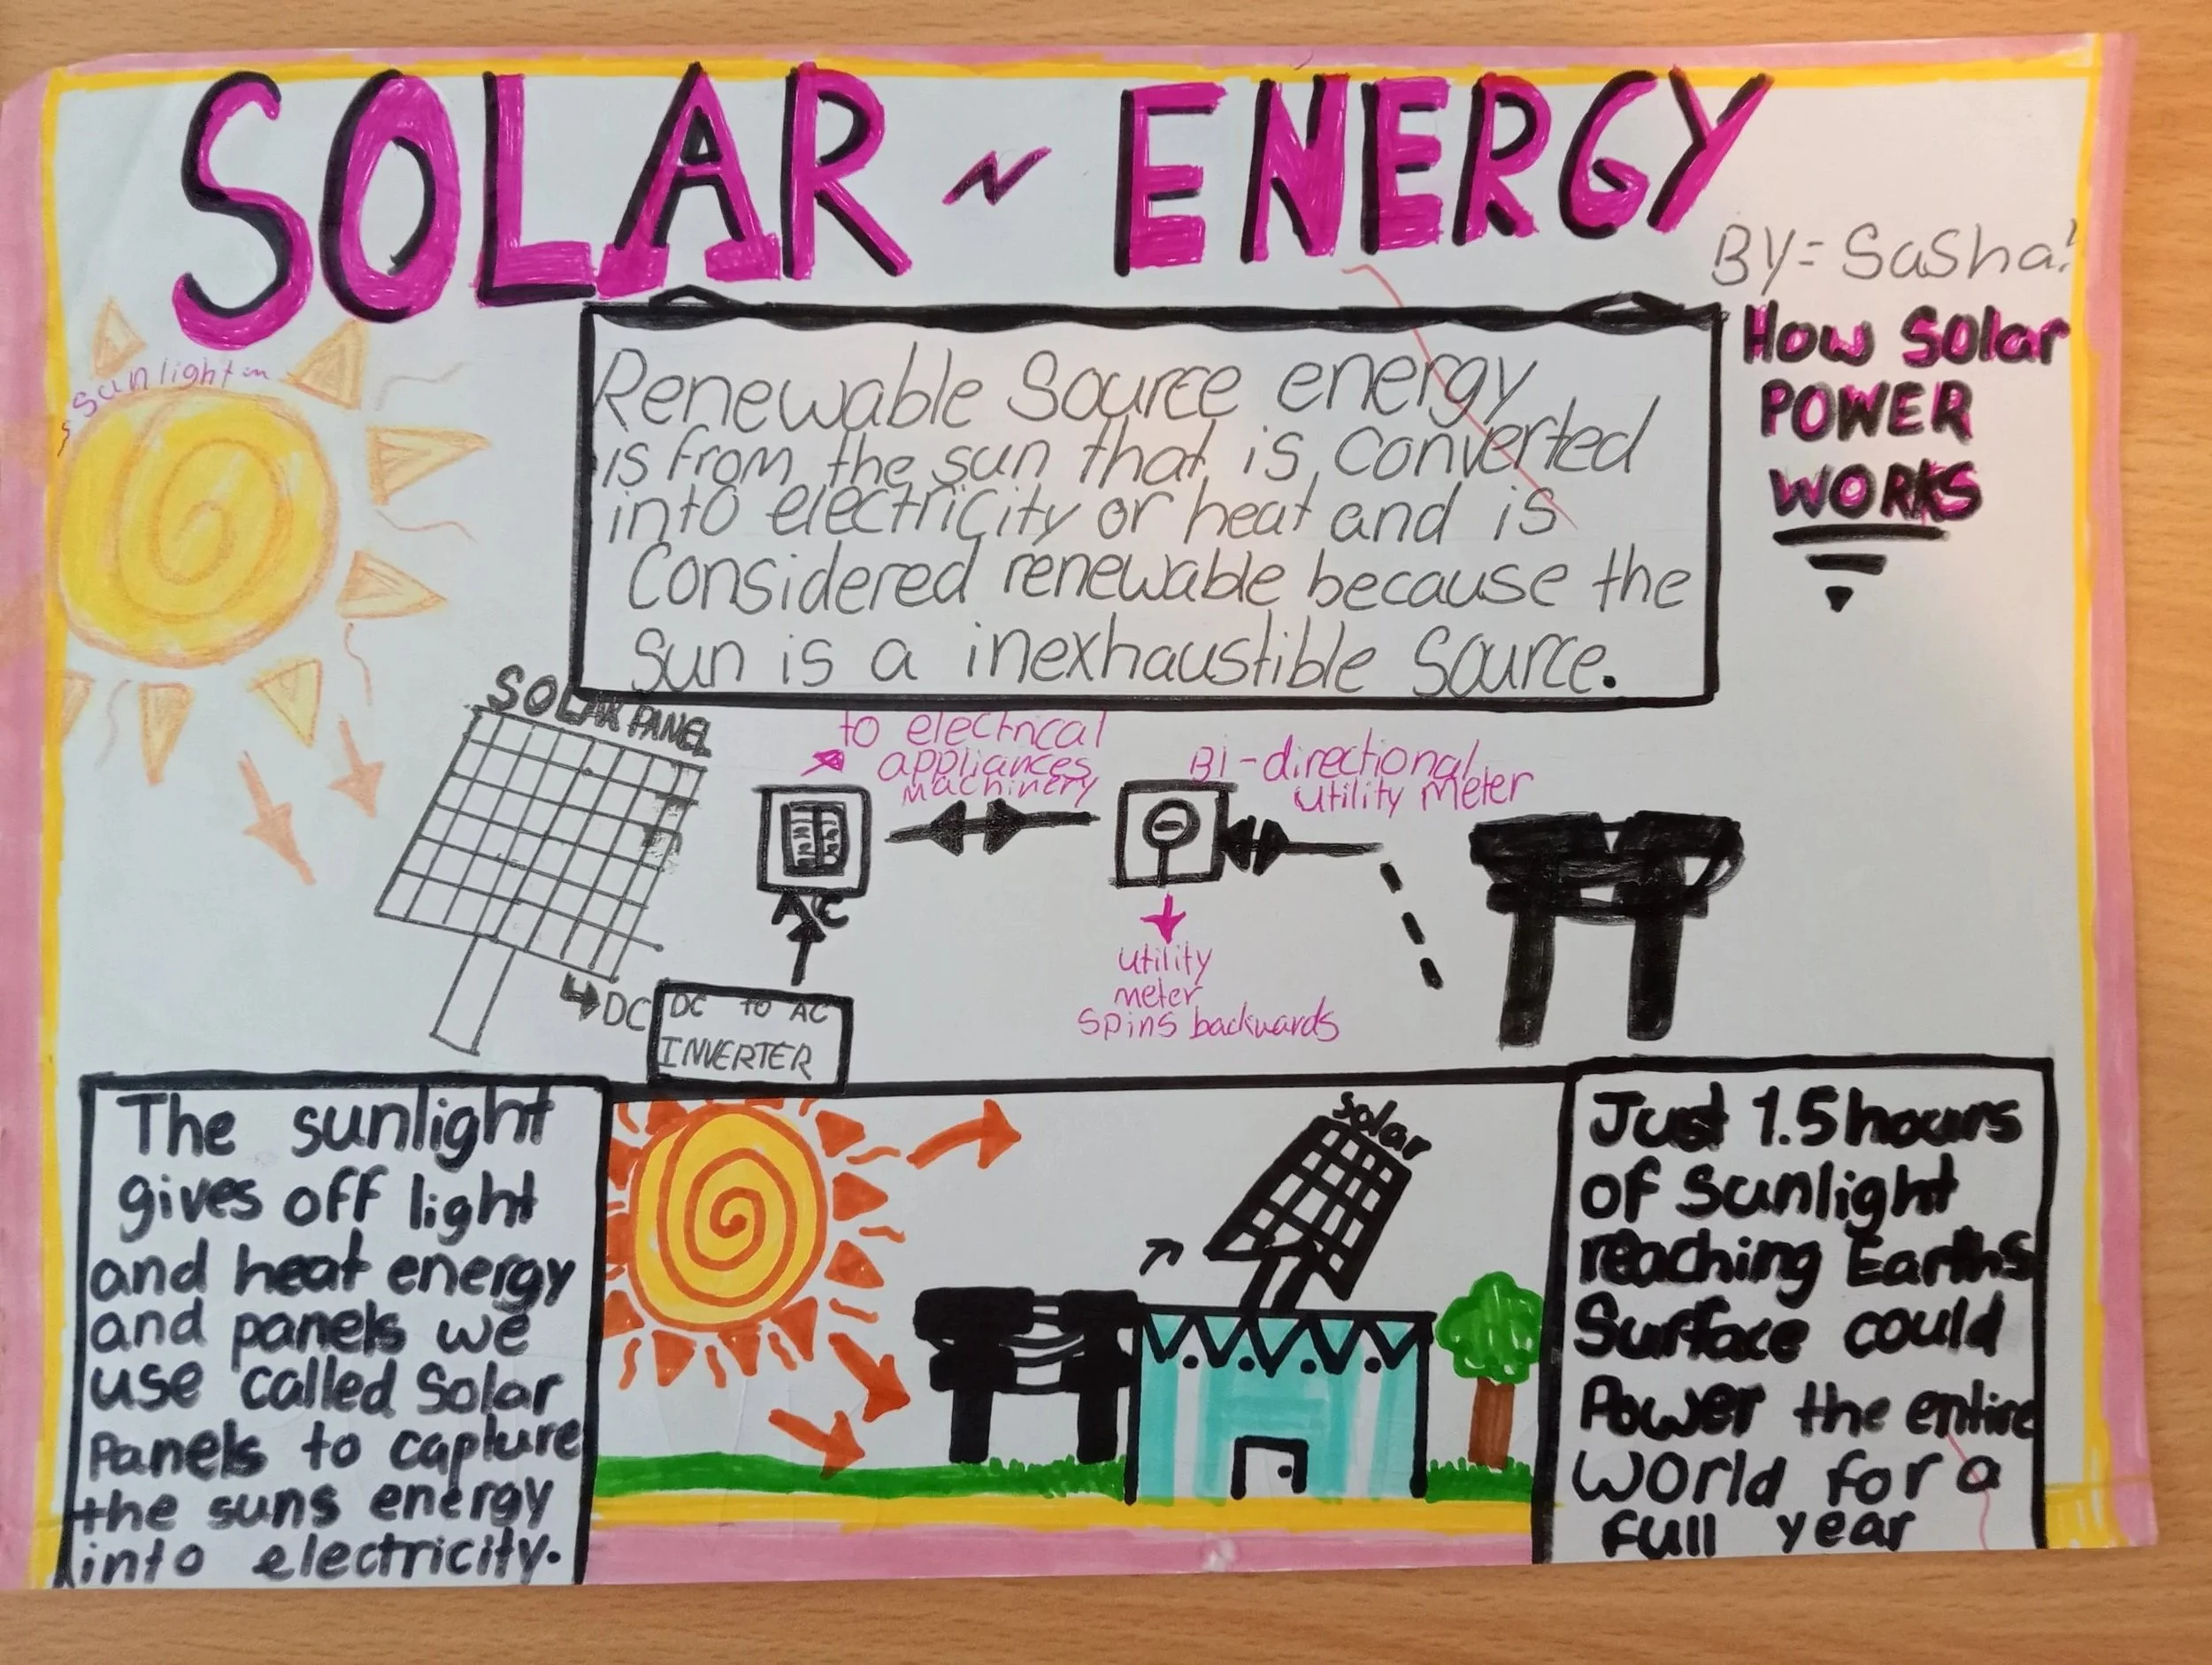 SOLAR ~ ENERGY
BY= Sasha!
How Solar
POWER
WORKS
Sunlight
Renewable Source energy
is from the sun that is converted
into electricity or heat and is
Considered renewable because the
sun is a inexhaustible Source.
SOLAR PANEL
to electrical
appliances
Machinery
Bi-directional
utility Meter
AC
DC
DC to AC
INVERTER
utility
meter
Spins backwards
The sunlight
gives off light
and heat energy
and panels we
use called Solar
Panels to capture
the suns energy
into electricity.
Solar
Just 1.5 hours
of Sunlight
reaching Earths
Surface could
Power the entire
World for a
full year